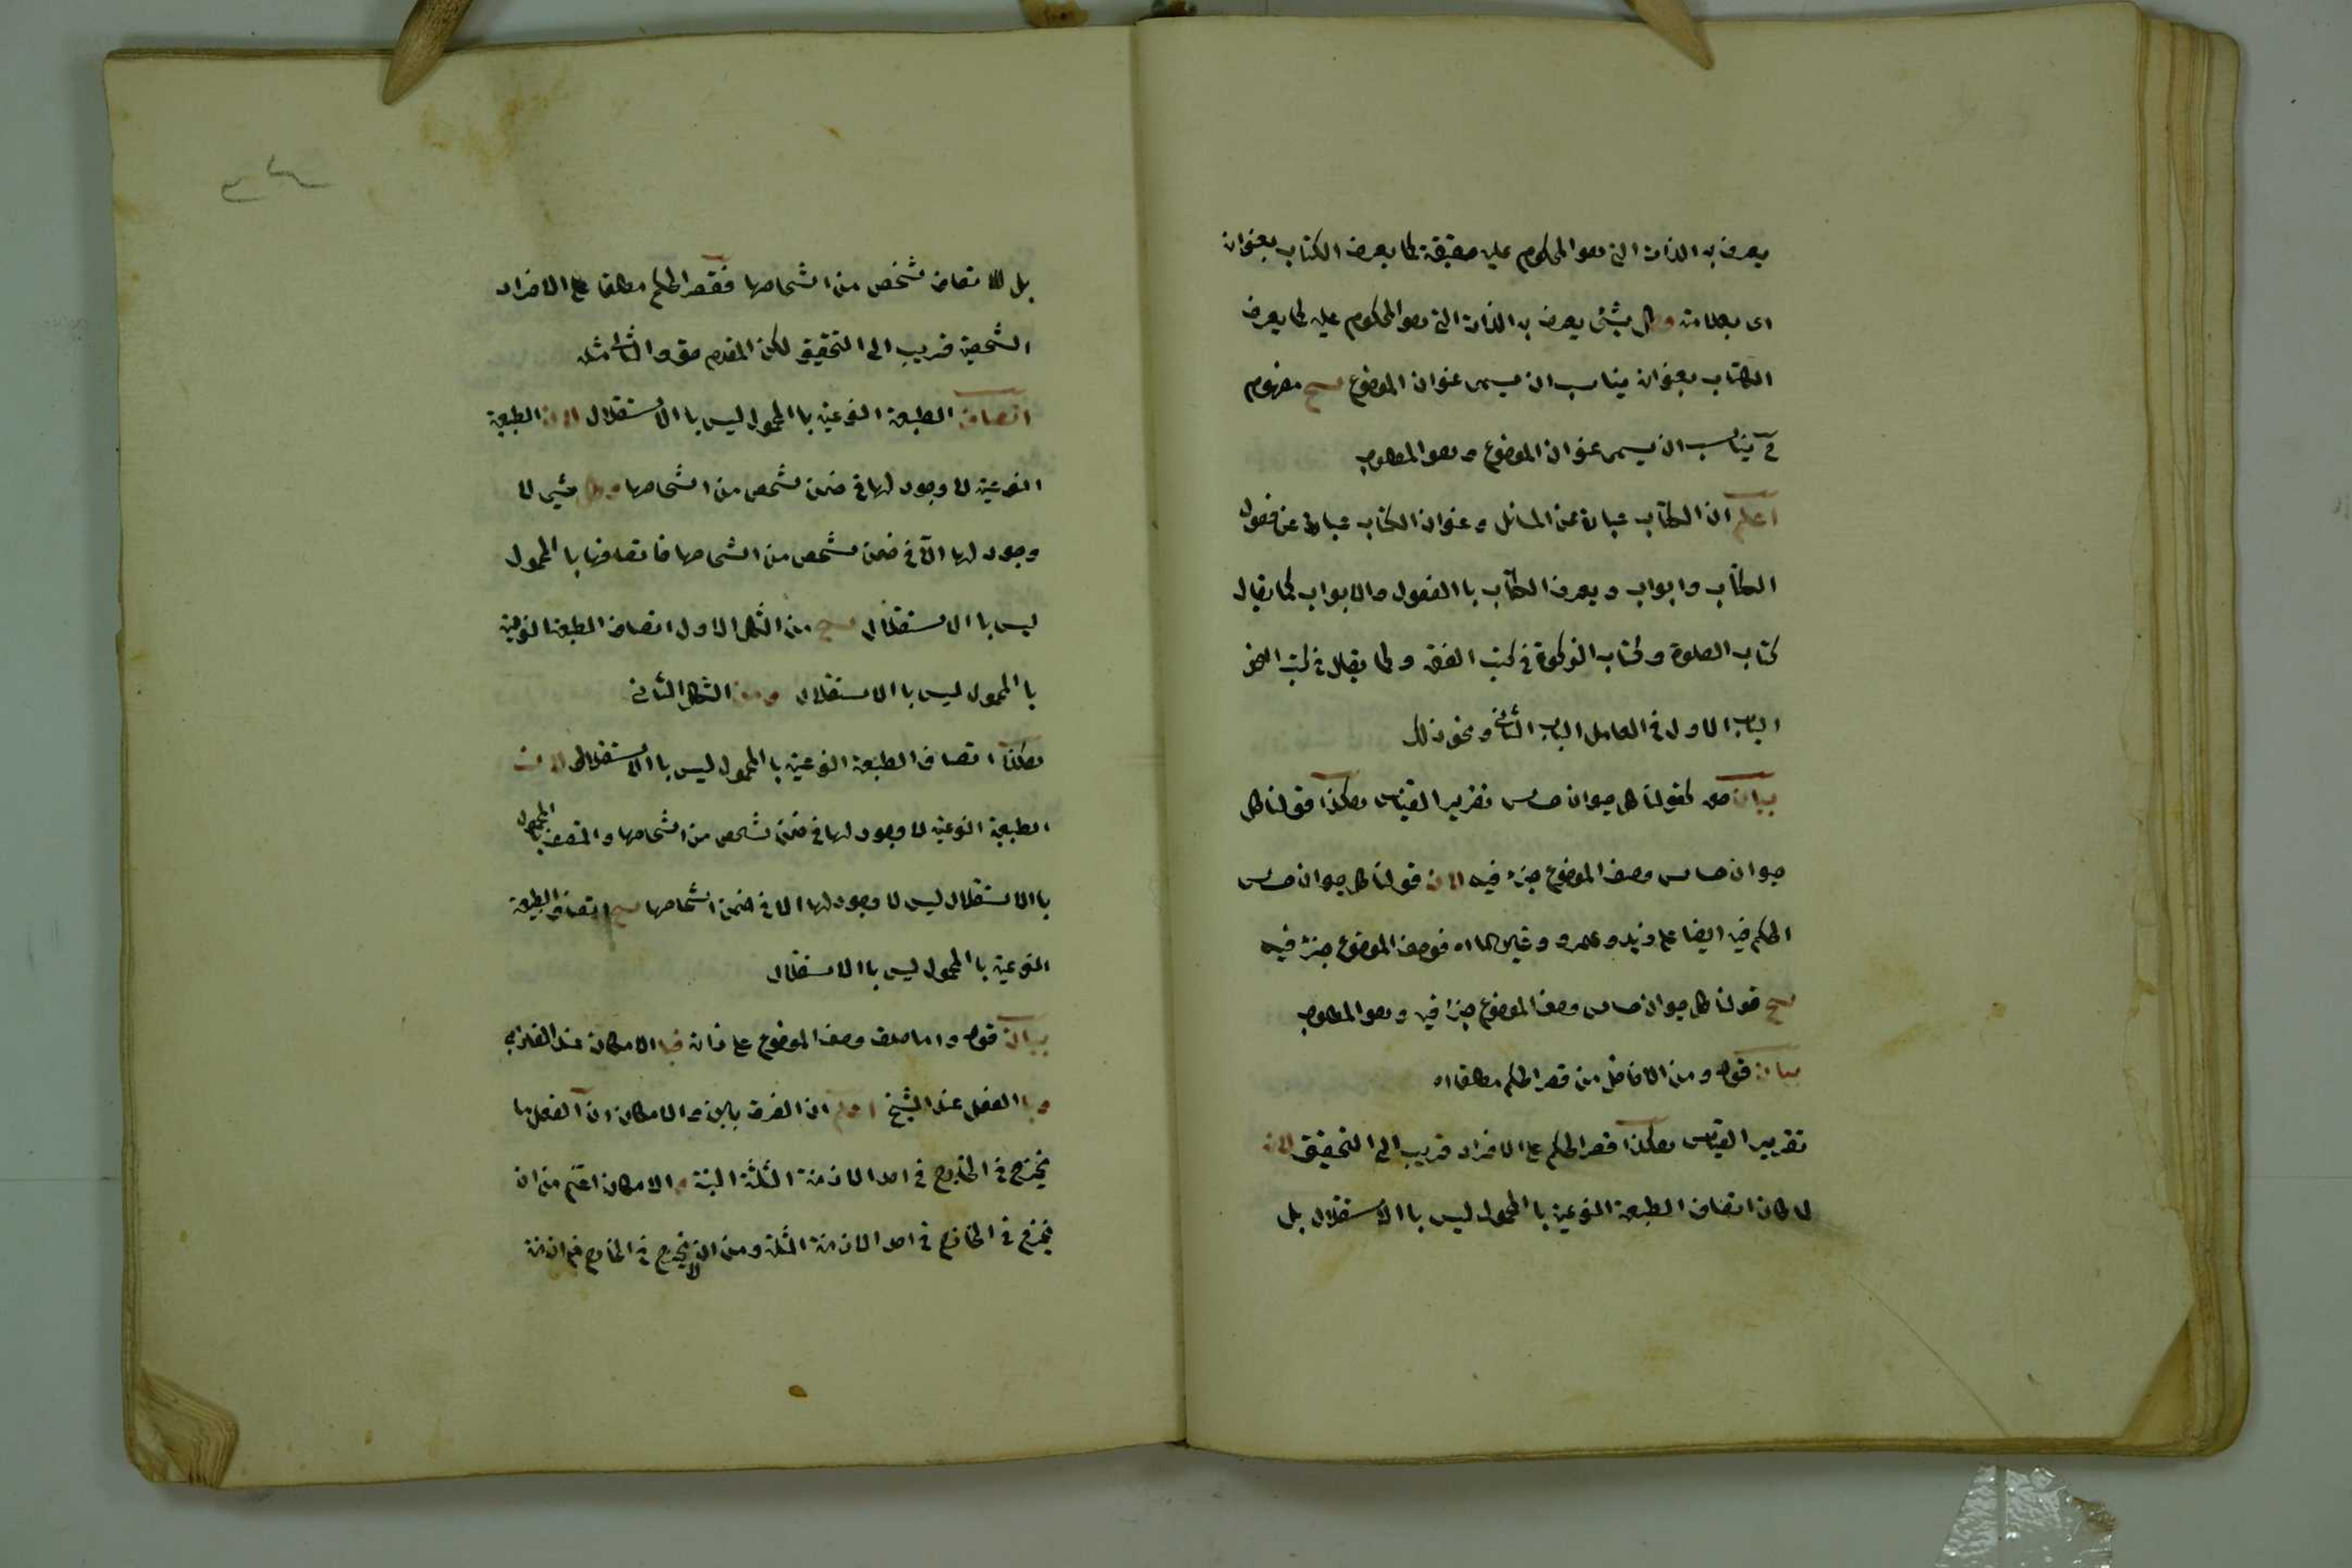 يعرف به الذات التى هو المحكوم عليه حقيقة كما يعرف الكتاب بعنوان
اى بعلامة وكل شئ يعرف به الذات التى هو المحكوم عليه كما يعرف
الكتاب بعنوان يناسب ان يسمى عنوان الموضوع ينتج مفهوم
ج يناسب ان يسمى عنوان الموضوع وهو المطلوب
اعلم ان الكتاب عبارة عن المسائل وعنوان الكتاب عبارة عن فصول
الكتاب وابواب ويعرف الكتاب باالفصول والابواب كما يقال
كتاب الصلوة وكتاب الزكوة فى كتب الفقه وكما يقال فى كتب النحو
الباب الاول فى العامل الباب الثانى ونحو ذلك
بيان كقولنا كل حيوان حساس تقرير القياس هكذا قولنا كل
حيوان حساس وصف الموضوع جزء فيه لان قولنا كل حيوان حساس
الحكم فيه ايضا على زيد وعمرو وغيرهما اه فوصف الموضوع جزء فيه
ينتج قولنا كل حيوان حساس وصف الموضوع جزء فيه وهو المطلوب
بيان قوله ومن الافاضل من قصر الحكم مطلقا اه
تقرير القياس هكذا قصر الحكم على الافراد قريب الى التحقيق لانه
لما كان اتصاف الطبيعة النوعية باالمحمول ليس باالاستقلال بل
بل لاتصاف شخص من اشخاصها فقصر الحكم مطلقا على الافراد
الشخصية قريب الى التحقيق لكن المقدم حق والتالى مثله
اتصاف الطبيعة النوعية باالمحمول ليس باالاستقلال لان الطبيعة
النوعية لا وجود لها فى ضمن شخص من اشخاصها وكل شئ لا
وجود لها الا فى ضمن شخص من اشخاصها فاتصافها باالمحمول
ليس باالاستقلال ينتج من الشكل الاول اتصاف الطبيعة النوعية
باالمحمول ليس باالاستقلال ومن الشكل الثانى
هكذا اتصاف الطبيعة النوعية باالمحمول ليس باالاستقلال لان
الطبيعة النوعية لا وجود لها فى ضمن شخص من اشخاصها والمتصف باالمحمول
باالاستقلال ليس لا وجود لها الا فى ضمن اشخاصها ينتج اتصاف الطبيعة
النوعية باالمحمول ليس باالاستقلال
بيان قوله واما صدق وصف الموضوع على ذاته فباالامكان عند الفارابى
وباالفعل عند الشيخ اعلم ان الفرق بين والامكان ان الفعل ما
يخرج فى الخارج فى احد الازمنة الثلثة البتة والامكان اعم من ان
يخرج فى الخارج فى احد الازمنة الثلثة ومن ان لا يخرج فى الخارج فى ازمنة